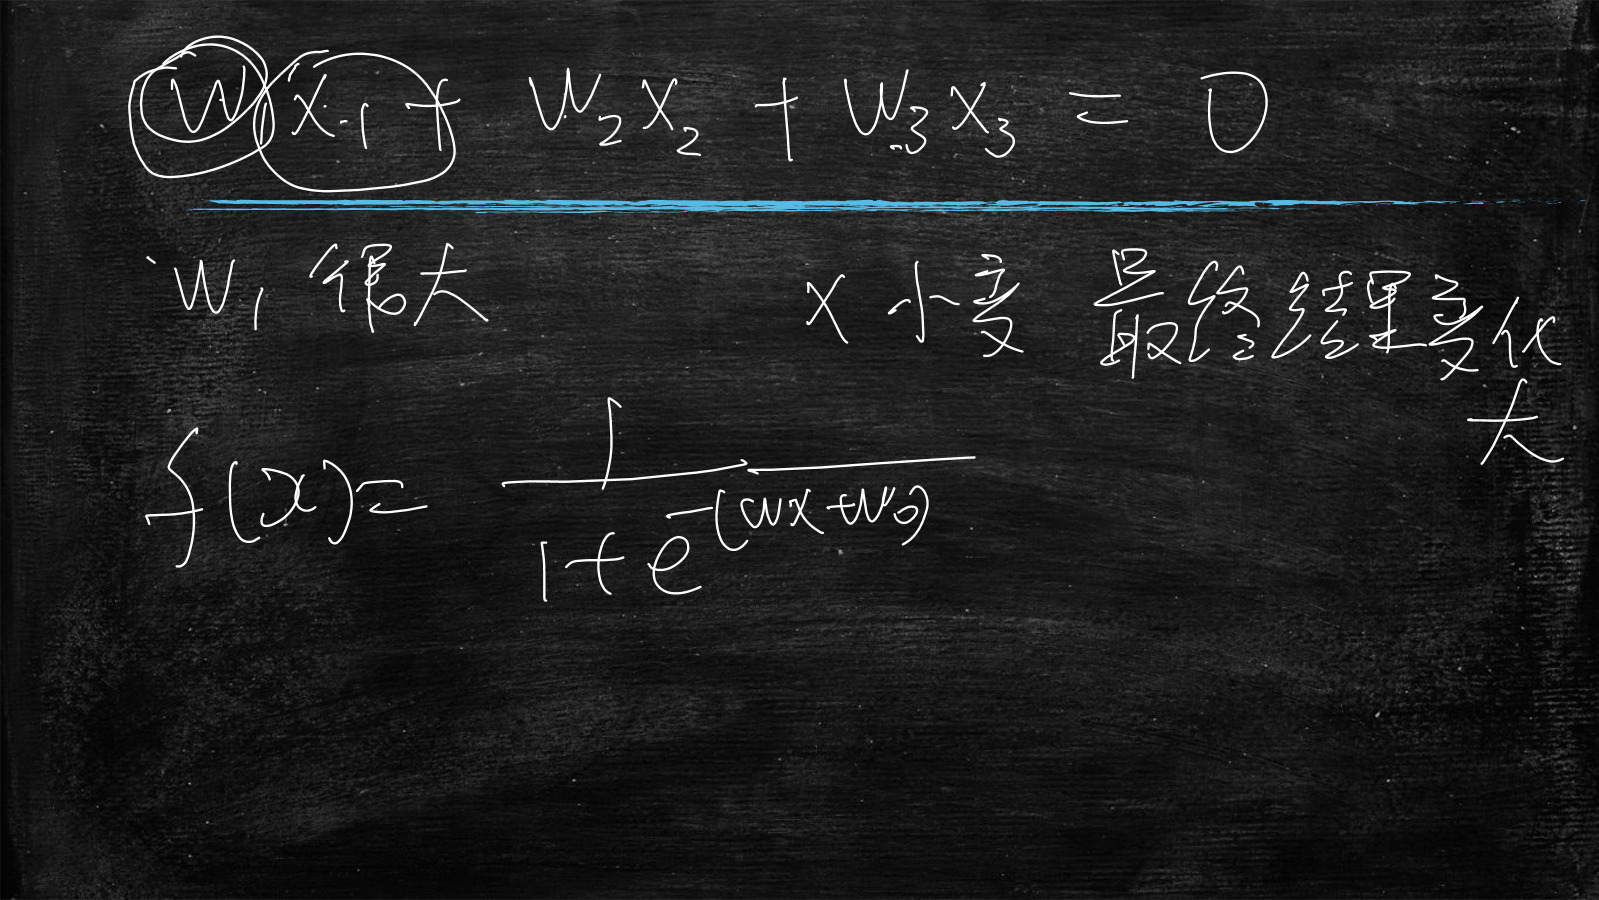 w x₁ + w₂x₂ + w₃x₃ = 0
w₁ 很大 x 小变 最终结果变化大
f(x) = 1 / (1 + e^-(wx+w₀))